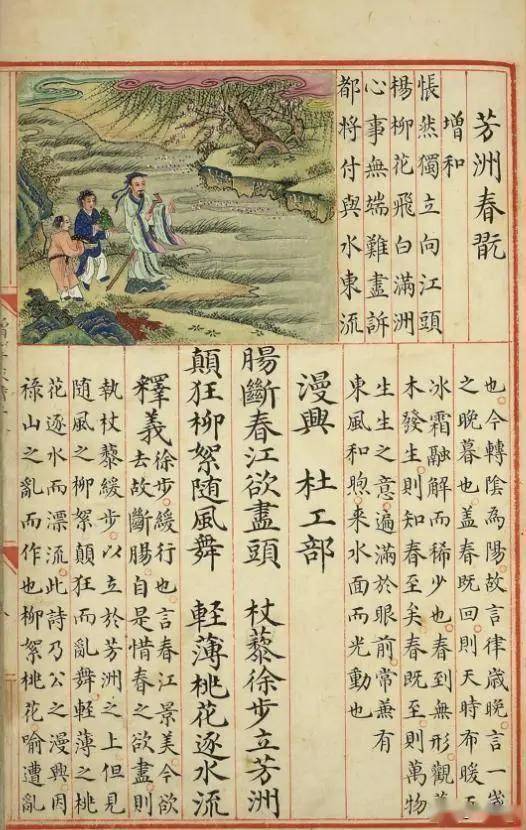 芳洲春翫
增和
悵然獨立向江頭
楊柳花飛白滿洲
心事無端難盡訴
都將付與水東流
也今轉陰為陽故言律歲晚言一歲
之晚暮也蓋春既回則天時布暖
冰霜融解而稀少也春到無形觀
木發生則知春至矣春既至則萬物
生生之意遍滿於眼前常兼有
東風和煦來水面而光動也
漫興 杜工部
腸斷春江欲盡頭 杖藜徐步立芳洲
顛狂柳絮随風舞 輕薄桃花逐水流
釋義
徐步緩行也言春江景美今欲
去故斷腸自是惜春之欲盡則
執杖藜緩步以立於芳洲之上但見
随風之柳絮顛狂而亂舞輕薄之桃
花逐水而漂流此詩乃公之漫興因
祿山之亂而作也柳絮桃花喻遭亂